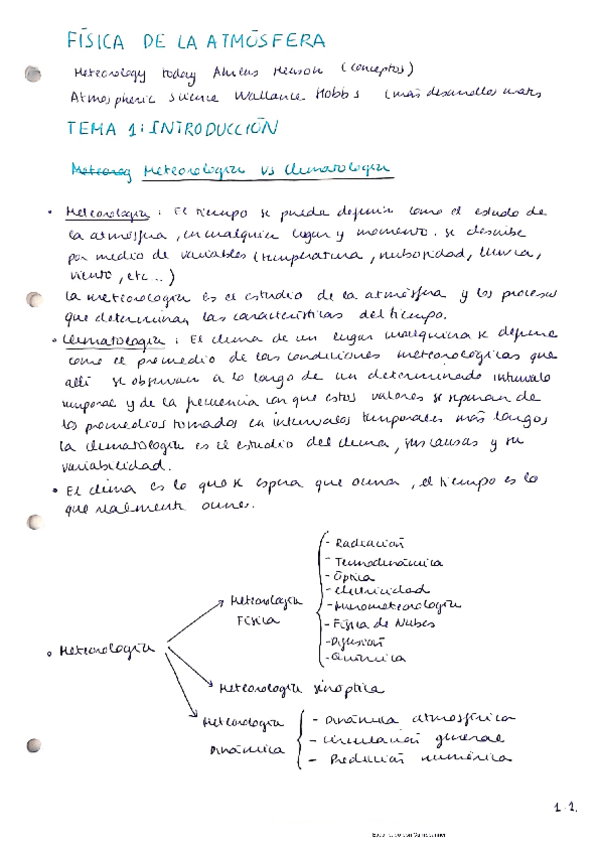 FÍSICA DE LA ATMÓSFERA
Meteorology today Ahrens Henson (conceptos)
Atmospheric Science Wallance Hobbs (más desarrollos mats
TEMA 1: INTRODUCCIÓN
Meteorog Meteorología vs Climatología
• Meteorología: El tiempo se puede definir como el estado de
la atmósfera, en cualquier lugar y momento. se describe
por medio de variables (temperatura, nubosidad, lluvia,
viento, etc...)
La meteorología es el estudio de la atmósfera y los procesos
que determinan las características del tiempo.
• Climatología: El clima de un lugar cualquiera se define
como el promedio de las condiciones meteorológicas que
allí se observan a lo largo de un determinado intervalo
temporal y de la frecuencia con que estos valores se separan de
los promedios tomados en intervalos temporales más largos
la climatología es el estudio del clima, sus causas y su
variabilidad.
• El clima es lo que se espera que ocurra, el tiempo es lo
que realmente ocurre.
• Meteorología
Meteorología Física
- Radiación
- Termodinámica
- Óptica
- electricidad
- Micrometeorología
- Física de Nubes
- Difusión
- Química
Meteorología sinóptica
Meteorología Dinámica
- Dinámica atmosférica
- Circulación general
- Predicción numérica
1-1.